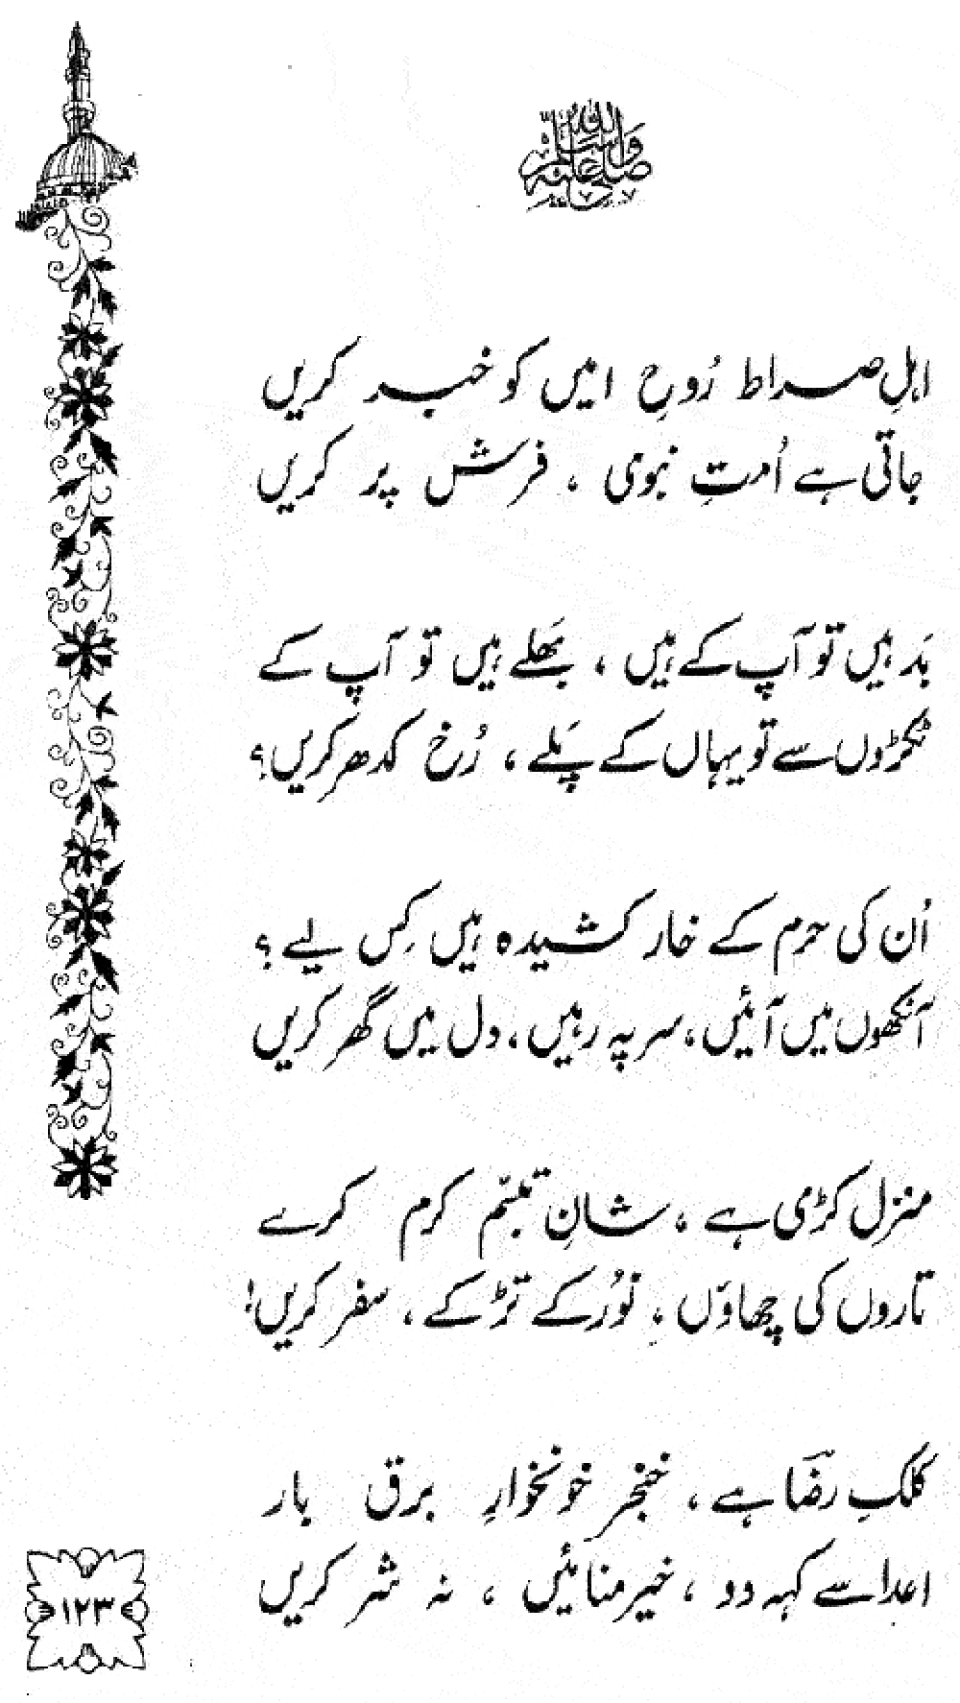 صلی اللہ علیہ وسلم
اہلِ صراط رُوحِ امیں کو خبر کریں
جاتی ہے اُمتِ نبوی ، فرش پر کریں
بَد ہیں تو آپ کے ہیں ، بَھلے ہیں تو آپ کے
ٹکڑوں سے تو یہاں کے پَلے ، رُخ کدھر کریں؟
اُن کی حرم کے خار کشیدہ ہیں کِس لیے ؟
آنکھوں میں آئیں ، سر پہ رہیں ، دل میں گھر کریں
منزل کڑی ہے ، شانِ تبسّم کرم کرے
تاروں کی چھاؤں ، نُور کے تڑکے ، سفر کریں!
کلکِ رضؔا ہے ، خنجرِ خونخوارِ برق بار
اعدا سے کہہ دو ، خیر منائیں ، نہ شر کریں
۱۲۳